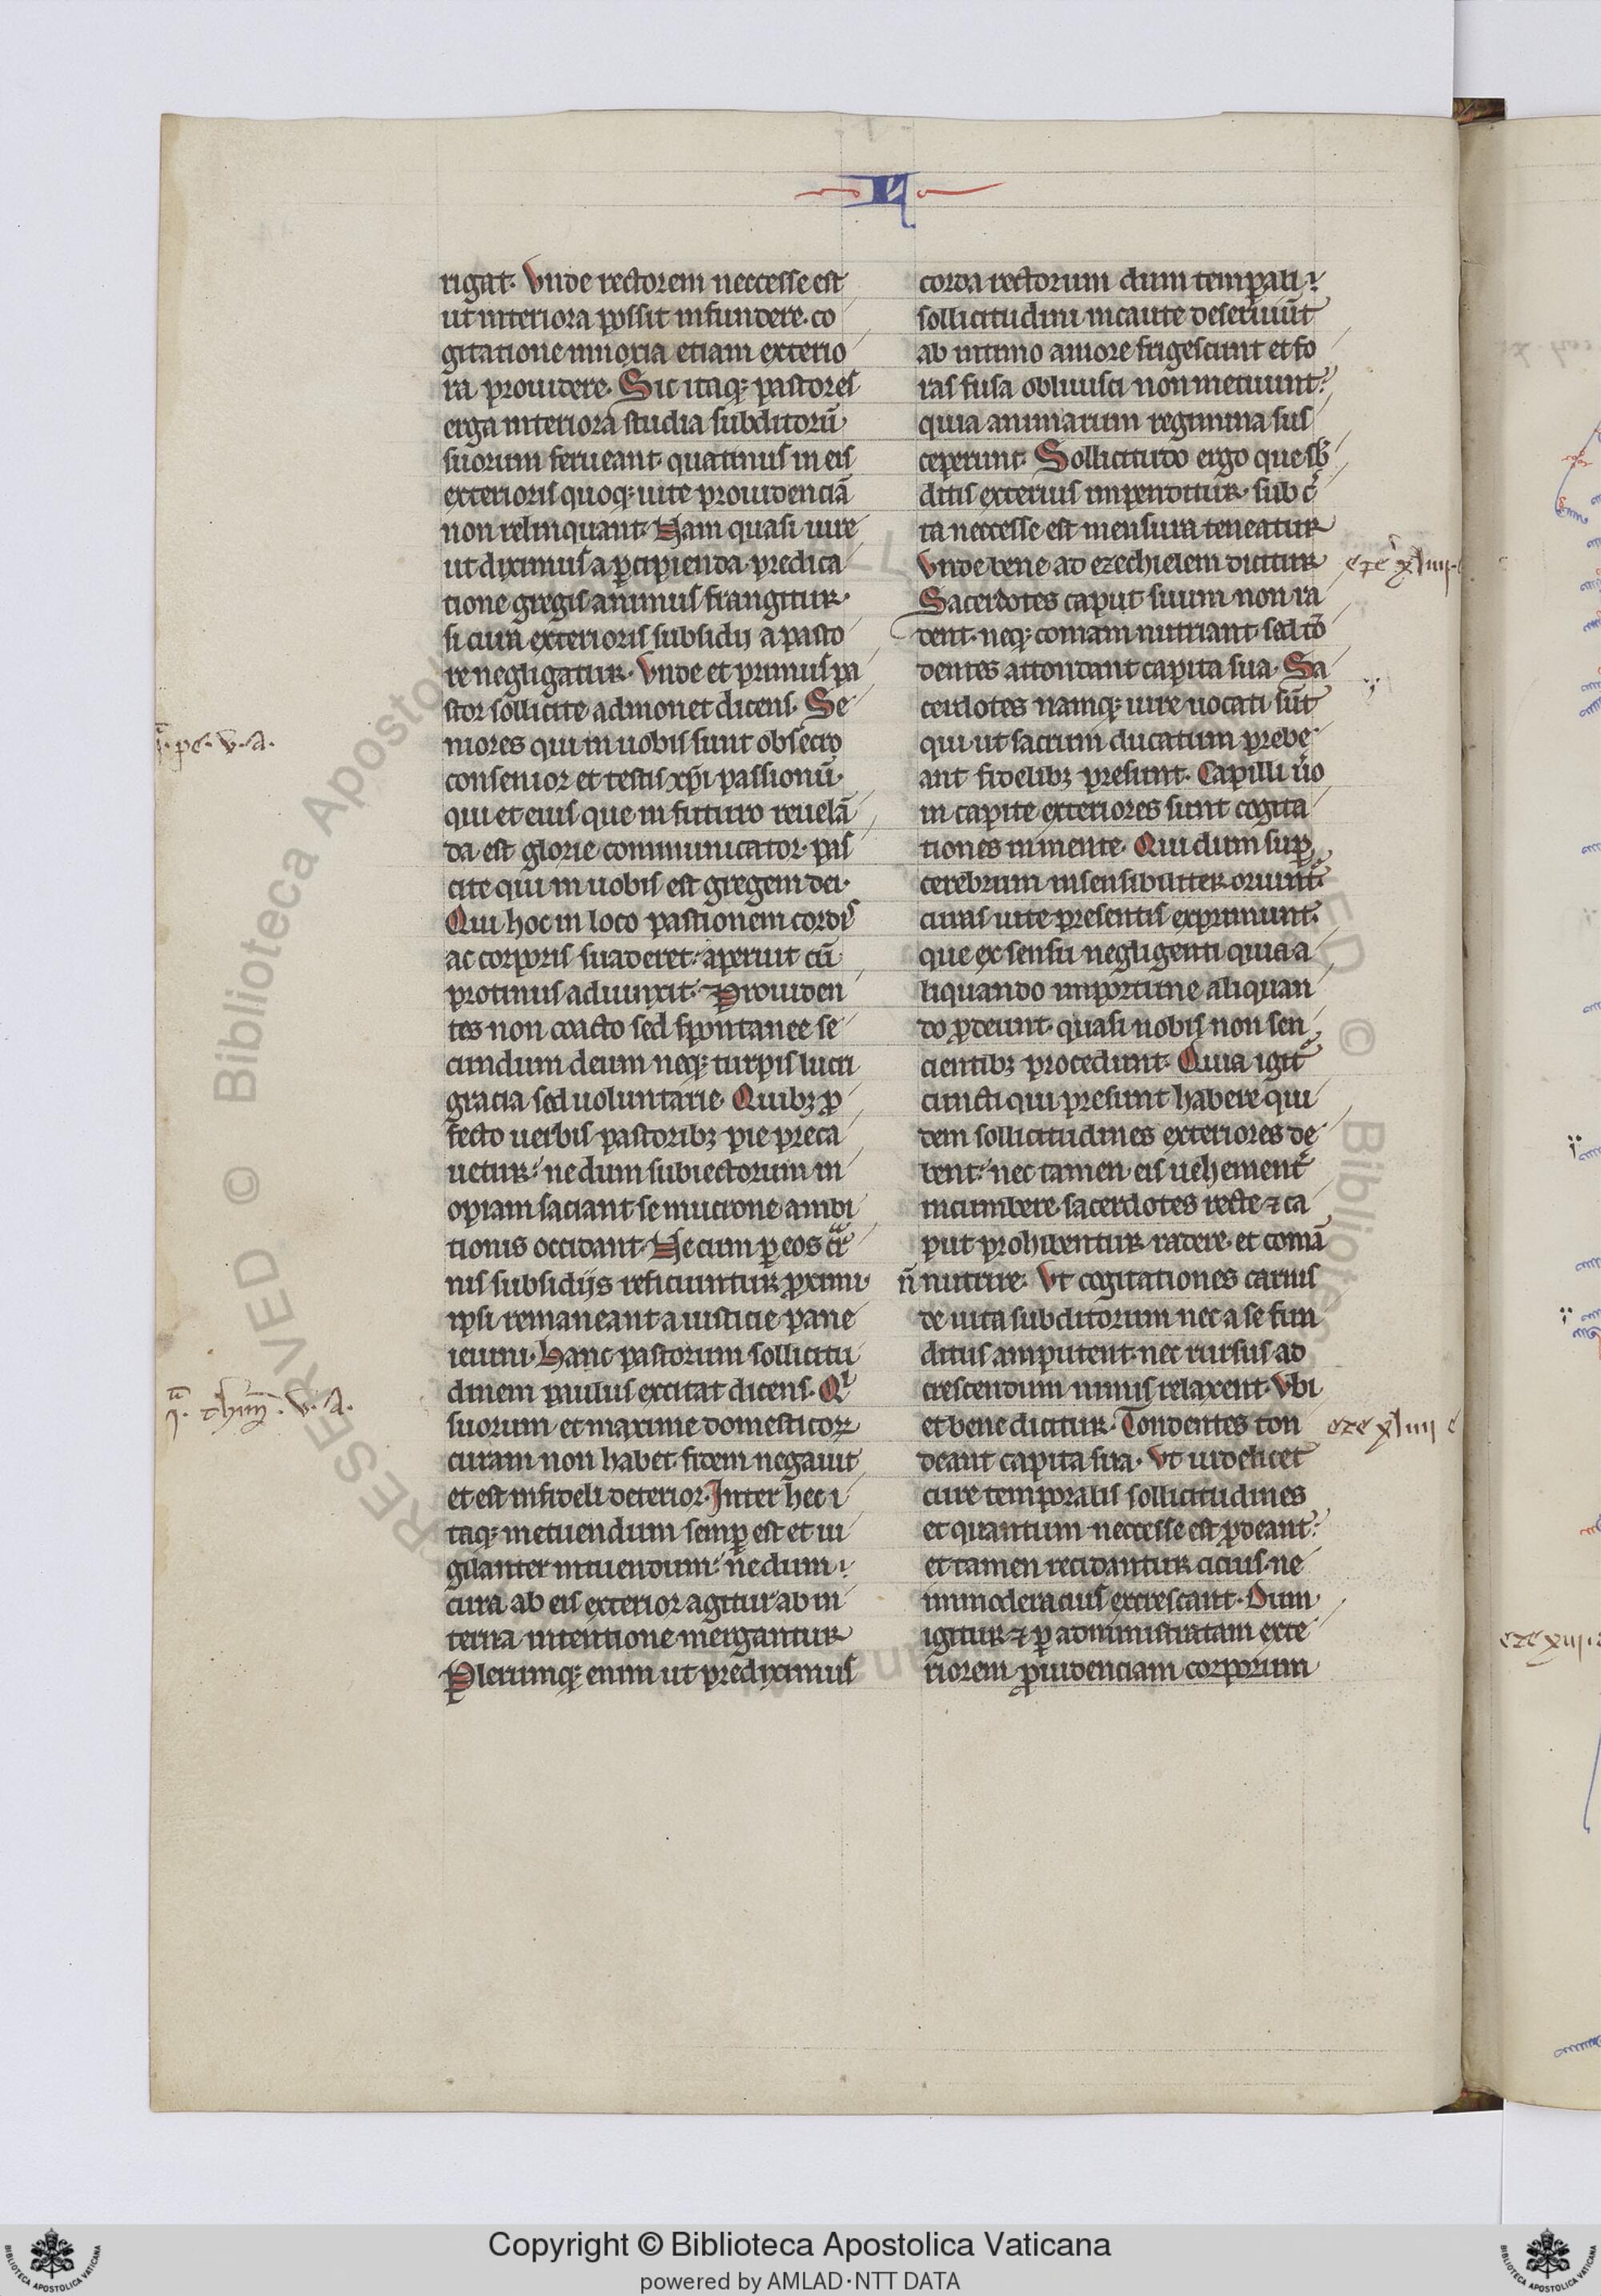 rigat. Vnde rectorem neccesse est
ut interiora possit infundere. co
gitatione innoxia etiam exterio
ra prouidere. Sic itaq; pastores
erga interiora studia subditorū
suorum ferueant. quatinus in eis
exterioris quoq; uite prouidenciā
non relinquant. Nam quasi iure
ut diximus a ꝑcipienda predica
tione gregis animus frangitur.
si cura exterioris subsidij a pasto
re negligatur. Vnde et primus pa
stor sollicite admonet dicens. Se
niores qui in uobis sunt obsecro
consenior et testis xp̄i passionū.
qui et eius que in futuro reuelā
da est glorie communicator. pas
cite qui in uobis est gregem dei.
Qui hoc in loco pastionem cordis
ac corporis suaderet. aperuit cū
protinus adiunxit. Prouiden
tes non coacto sed spontanee se
cundum deum neq; turpis lucri
gracia sed uoluntarie. Quibꝫ ꝓ
fecto uerbis pastoribꝫ pie preca
uetur. ne dum subiectorum in
opiam saciant se mucrone ambi
tionis occidant. Ne cum ꝑ eos cͣr
nis subsidijs reficiuntur ꝓximi.
ipsi remaneant a iusticie pane
ieiuni. Hanc pastorum sollicitu
dinem paulus excitat dicens. Qͥ
suorum et maxime domesticoꝝ
curam non habet. fidem negauit
et est infideli deterior. Inter hec i
taq; metuendum semꝑ est et ui
gilanter intuendum. ne dum
cura ab eis exterior agitur ab in
terna intentione mergantur
Plerumq; enim ut prediximus
corda rectorum dum temꝑali
sollicitudini incaute deseruiūt
ab intimo amore frigescunt et fo
ras fusa obliuisci non metuunt.
quia animarum regimina sus
ceperunt. Sollicitudo ergo que sb̄
ditis exterius impenditur. sub c̄
ta neccesse est mensura teneatur
Vnde bene ad ezechielem dicitur
Sacerdotes caput suum non ra
dent. neq; comam nutriant. sed tō
dentes attondant capita sua. Sa
cerdotes namq; iure uocati sūt
qui ut sacrum ducatum prebe
ant fidelibꝫ presunt. Capilli ūo
in capite exteriores sunt cogita
tiones in mente. Qui dum suꝑ
cerebrum insensibiliter oriunt᷑
curas uite presentis exprimunt.
que ex sensu negligenti quia a
liquando importune aliquan
do ꝓdeunt. quasi nobis non sen
cientibꝫ procedunt. Quia igit᷑
cuncti qui presunt habere qui
dem sollicitudines exteriores de
bent. nec tamen eis uehement᷑
incumbere. sacerdotes recte ⁊ ca
put prohibentur radere. et comā
n̄ nutrire. Vt cogitationes carnis
de uita subditorum nec a se fun
ditus amputent. nec rursus ad
crescendum nimis relaxent. Vbi
et bene dicitur. Tondentes ton
deant capita sua. Vt uidelicet
cure temporalis sollicitudines
et quantum neccesse est ꝓdeant.
et tamen recidantur cicius. ne
immoderacius excrescant. Dum
igitur ⁊ ꝑ administratam exte
riorem ꝓuidenciam corporum
pe. v. A.
thim̄. v. A.
eze xliiij
eze xliiij
© Biblioteca Apostolica Vaticana
Copyright © Biblioteca Apostolica Vaticana
powered by AMLAD·NTT DATA